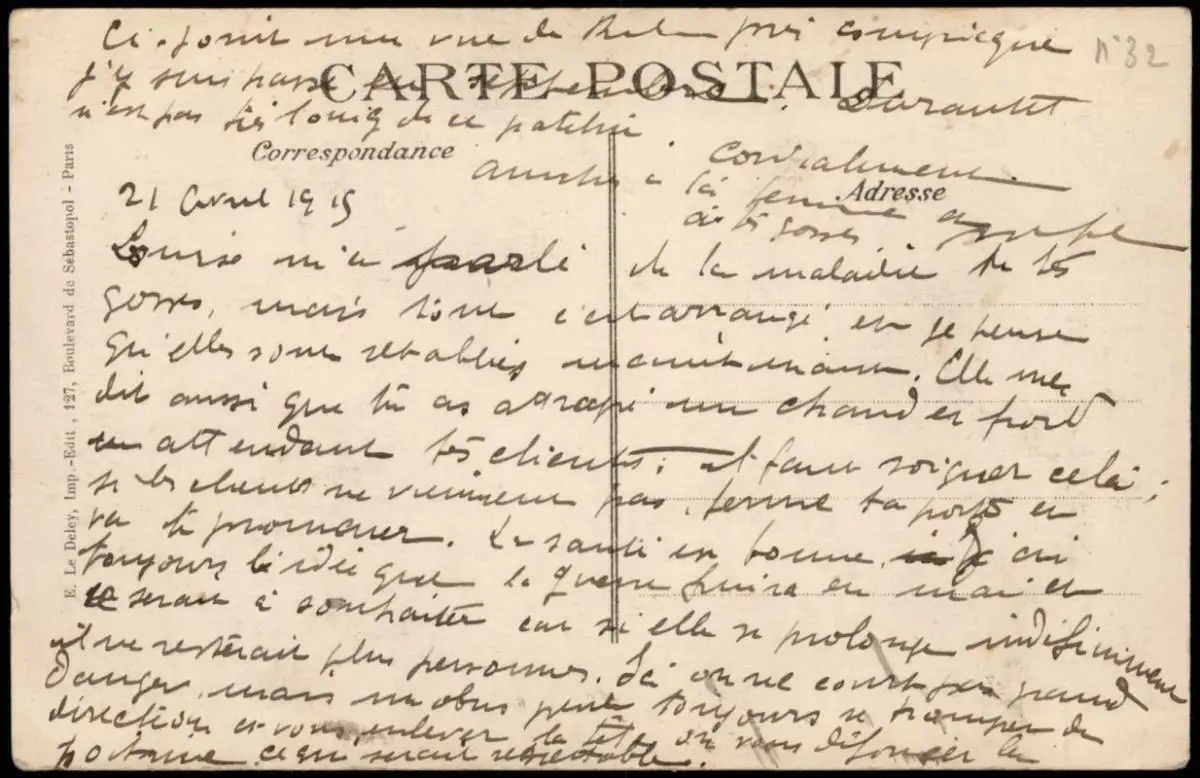 Ci-joint une vue de près Compiègne
n° 32
j'y suis passé en septembre. Durantet
CARTE POSTALE
n'est pas très loin de ce patelin
Correspondance
Cordialement
amitiés à ta femme
Adresse
à tes gosses.
E. Le Deley, Imp.-Edit, 127, Boulevard de Sébastopol - Paris
21 Avril 1915
Louise m'a parlé de la maladie de tes
gosses, mais tout c'est arrangé et je pense
qu'elles sont rétablies maintenant. Elle me
dit aussi que tu as attrapé un chaud et froid
en attendant tes clients ; il faut soigner cela ;
si les clients ne viennent pas, ferme ta porte et
va te promener. La santé est bonne, j'ai
toujours l'idée que la guerre finira en mai et
ce serait à souhaiter car si elle se prolonge indéfiniment
il ne resterait plus personne. Ici on ne court pas grand
danger, mais un obus peut toujours se tromper de
direction et vous enlever la tête ou vous défoncer la
poitrine ce qui serait regrettable.